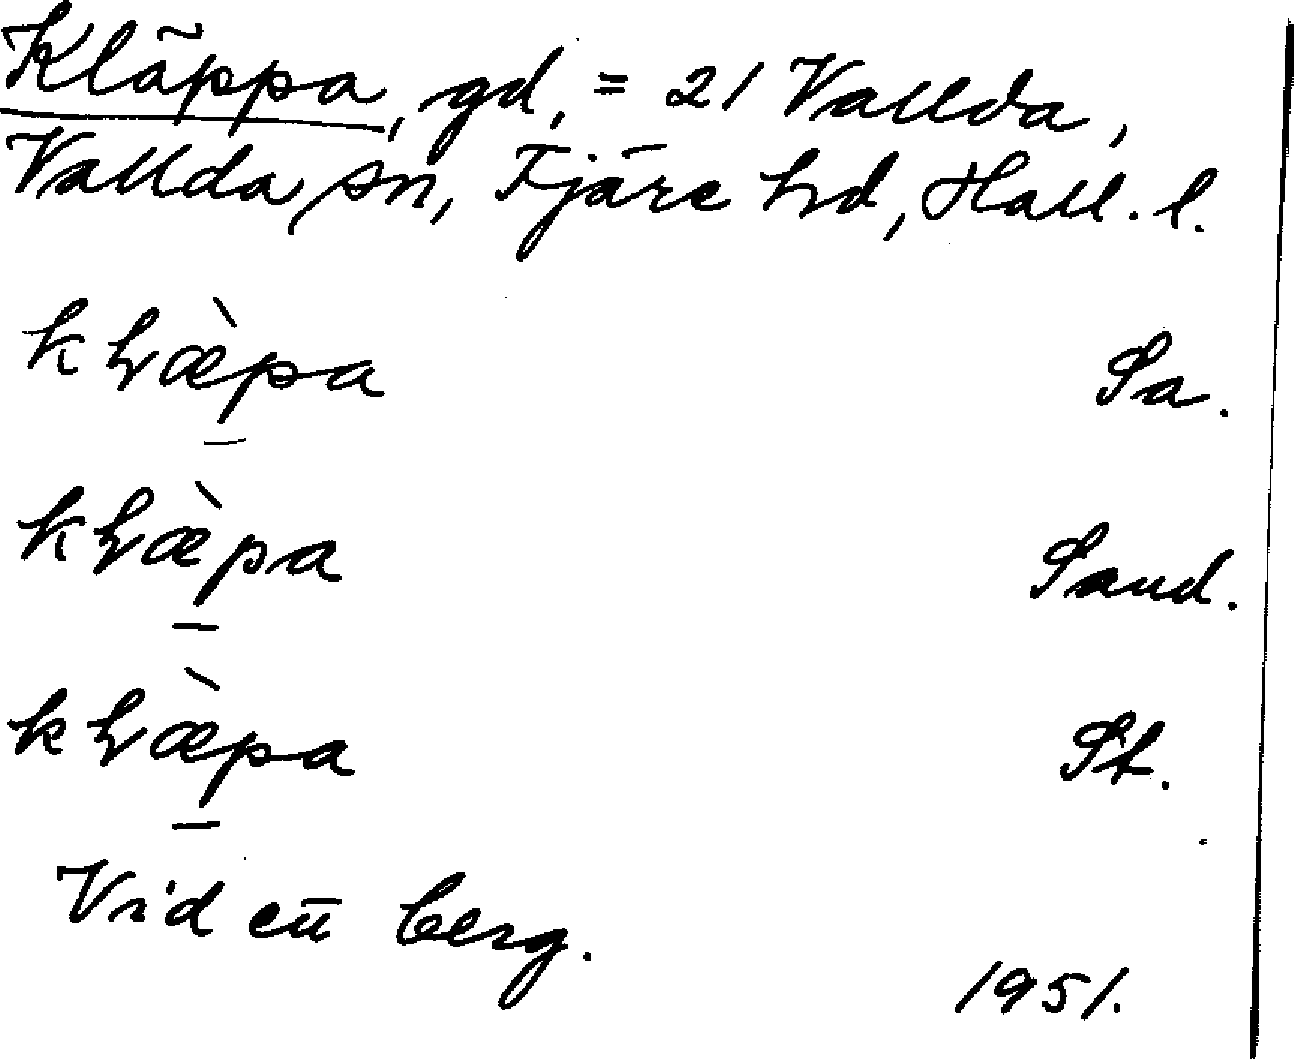 Kläppa, gd, = 21 Vallda,
Vallda sn, Fjäre hd, Hall. l.
kɫæ̀p̱a Sa.
kɫæ̀p̱a Sand.
kɫæ̀p̱a St.
Vid ett berg.
1951.